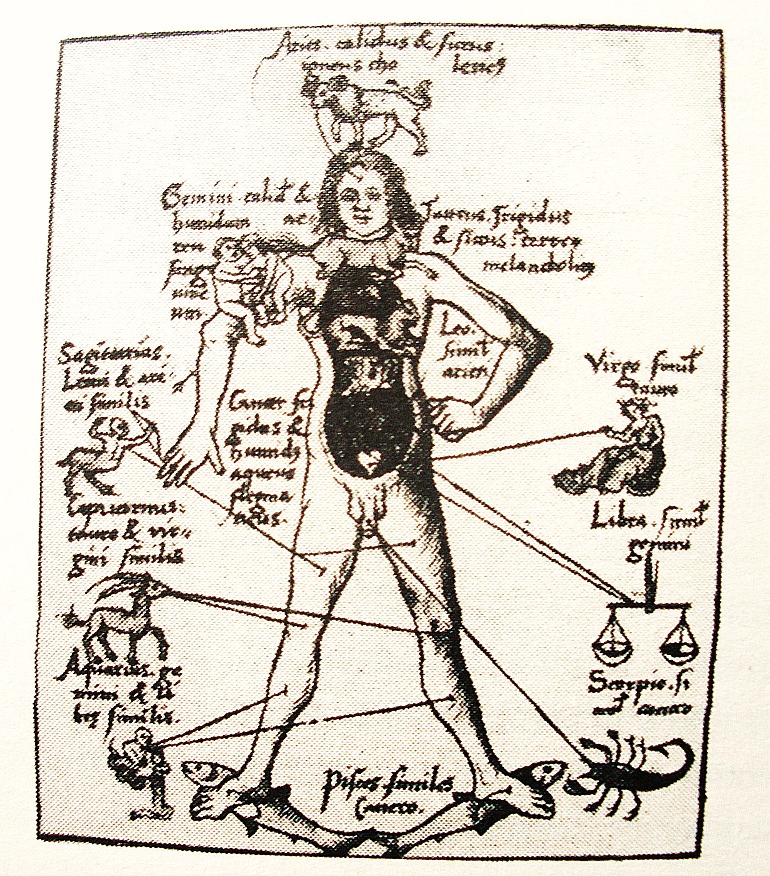 Aries. calidus & siccus:
igneus cho lericꝰ
Gemini calid' &
humidum ae-
reu
sang
uine
um.
Taurus. frigidus
& siccus: terreꝰ
melancholicꝰ
Leo.
simil'
arieti
Sagittarius.
Leoni & ari-
eti similis
Cancer fri
gidus &
humidꝰ
aqueus
flegma
ticus.
Virgo simil'
tauro
Capricornus:
tauro & vir-
gini similis
Libra. simil'
gemini
Aquarius. ge
mini & li
bre similis.
Scorpio. si
mil' cancro
Pisces similes
Cancro.